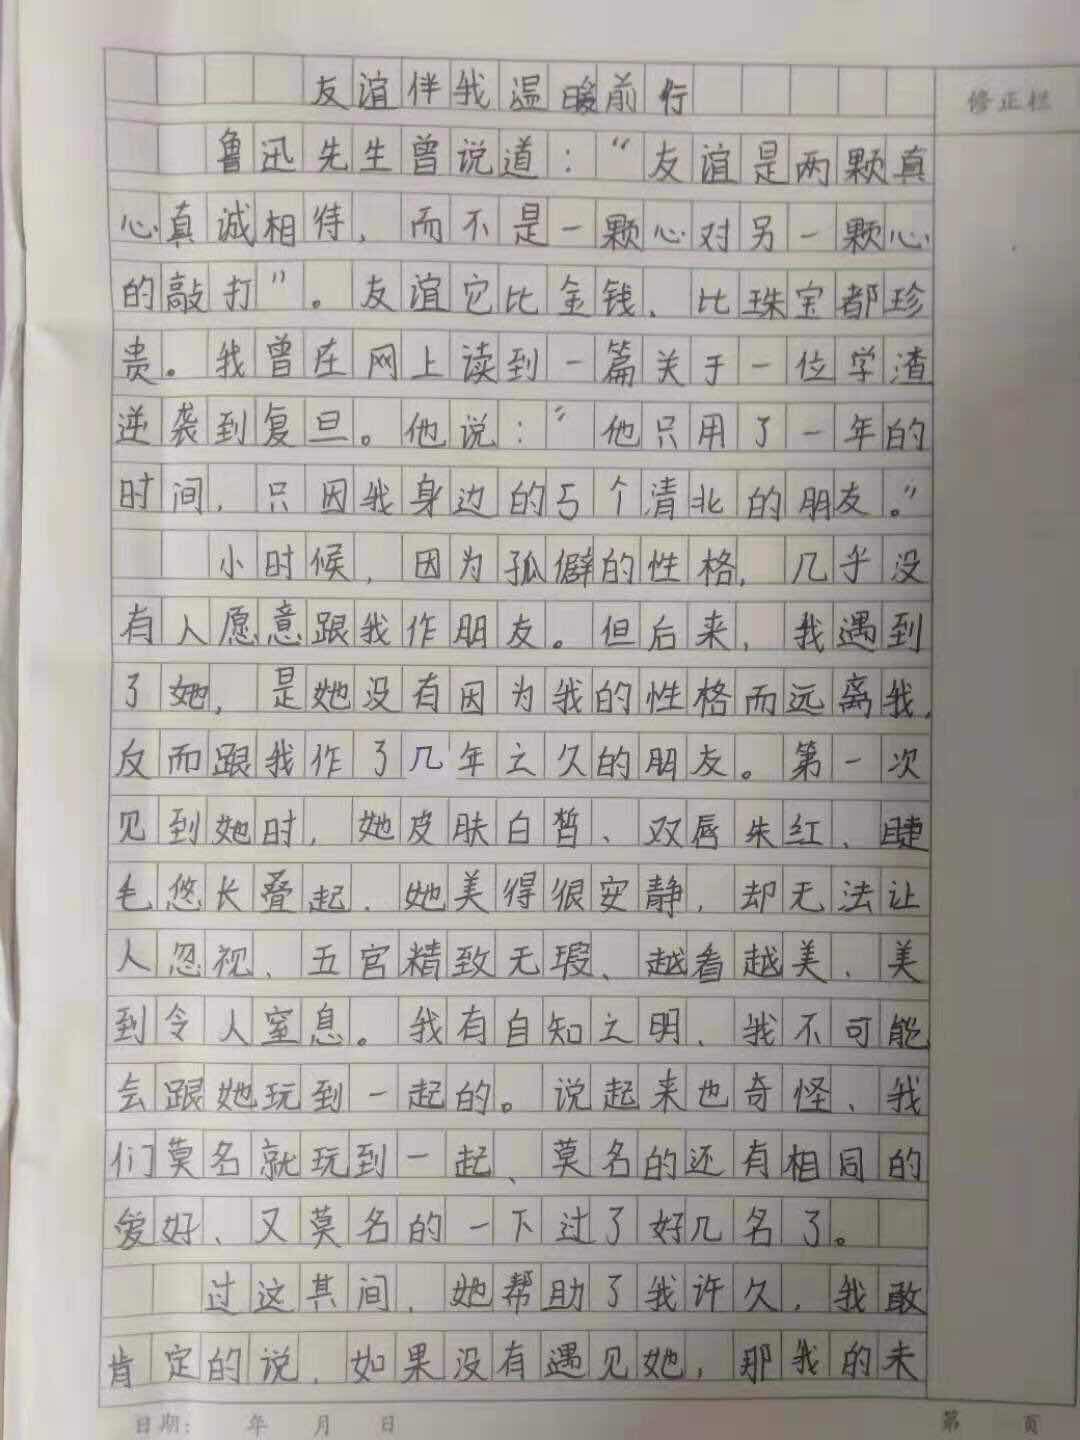 友谊伴我温暖前行
修正栏
鲁迅先生曾说道:“友谊是两颗真
心真诚相待,而不是一颗心对另一颗心
的敲打”。友谊它比金钱、比珠宝都珍
贵。我曾在网上读到一篇关于一位学渣
逆袭到复旦。他说:“他只用了一年的
时间,只因我身边的5个清北的朋友。”
小时候,因为孤僻的性格,几乎没
有人愿意跟我作朋友。但后来,我遇到
了她,是她没有因为我的性格而远离我,
反而跟我作了几年之久的朋友。第一次
见到她时,她皮肤白皙、双唇朱红、睫
毛悠长叠起、她美得很安静,却无法让
人忽视、五官精致无瑕、越看越美、美
到令人窒息。我有自知之明、我不可能
会跟她玩到一起的。说起来也奇怪、我
们莫名就玩到一起、莫名的还有相同的
爱好、又莫名的一下过了好几名了。
过这其间,她帮助了我许久,我敢
肯定的说,如果没有遇见她,那我的未
日期: 年 月 日
第 页